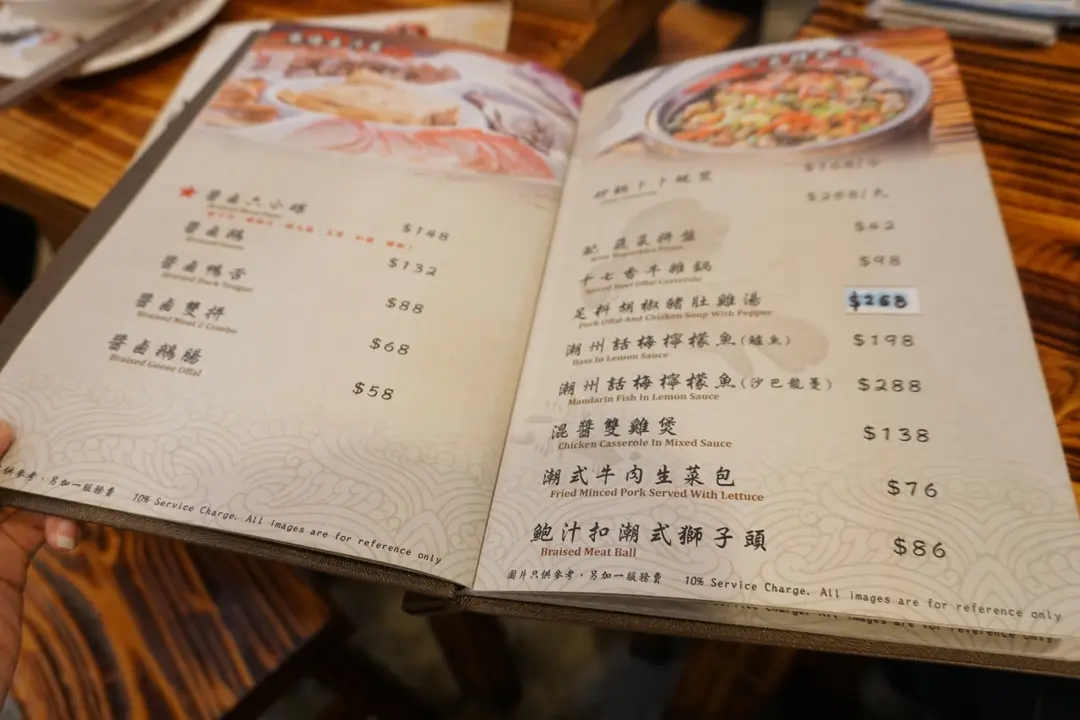 醬鹵六小碟
$148
醬鹵鵝
Braised Goose
$132
醬鹵鴨舌
Braised Duck Tongue
$88
醬鹵雙拼
Braised Meat 2 Combo
$68
醬鹵鵝腸
Braised Goose Offal
$58
供參考,另加一服務費 10% Service Charge. All images are for reference only
$168/小
$268/大
配 蔬菜拼盤
With Vegetables Platter
$42
十七香牛雜鍋
Spiced Beef Offal Casserole
$98
足料胡椒豬肚雞湯
Pork Offal And Chicken Soup With Pepper
$268
潮州話梅檸檬魚(鱸魚)
Bass In Lemon Sauce
$198
潮州話梅檸檬魚(沙巴龍躉)
Mandarin Fish In Lemon Sauce
$288
混醬雙雞煲
Chicken Casserole In Mixed Sauce
$138
潮式牛肉生菜包
Fried Minced Pork Served With Lettuce
$76
鮑汁扣潮式獅子頭
Braised Meat Ball
$86
圖片只供參考,另加一服務費 10% Service Charge. All images are for reference only
All images are for reference only